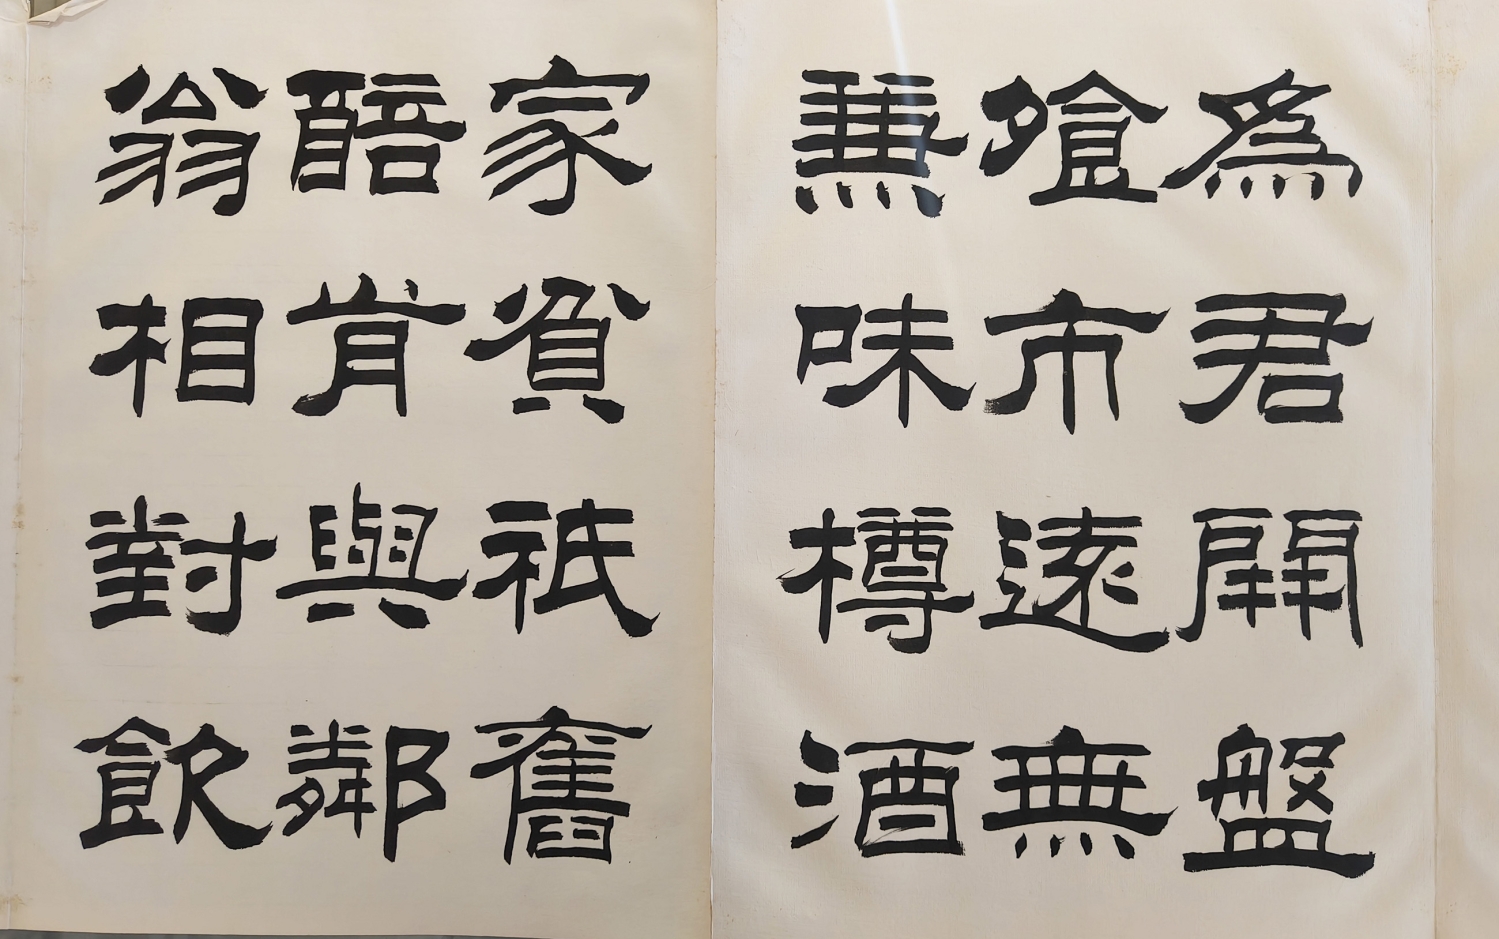 爲君開盤
飧市遠無
兼味樽酒
家貧祇舊
醅肯與鄰
翁相對飲